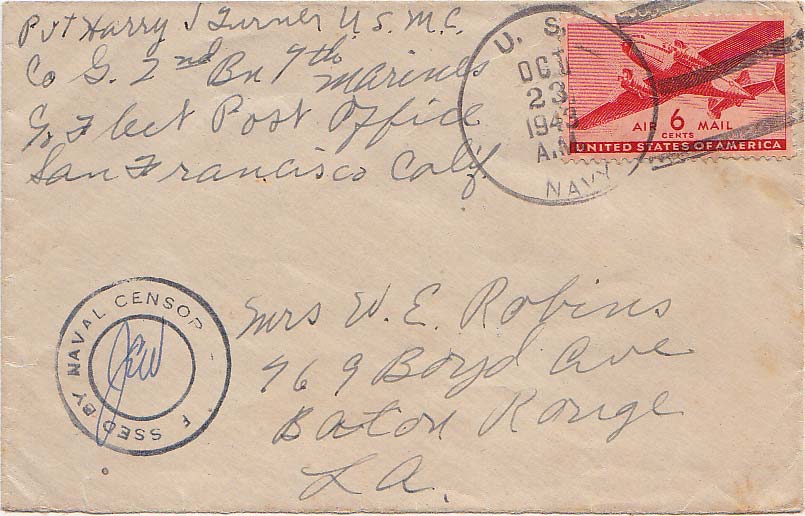 Pvt Harry J Turner U.S.M.C.
Co G. 2nd Bn 7th Marines
c/o Fleet Post Office
San Francisco Calif
U. S.
OCT
23
1943
A.M.
NAVY
AIR 6 MAIL
CENTS
UNITED STATES OF AMERICA
SSED BY NAVAL CENSOR
Mrs W. E. Robins
769 Boyd Ave
Baton Rouge
LA.